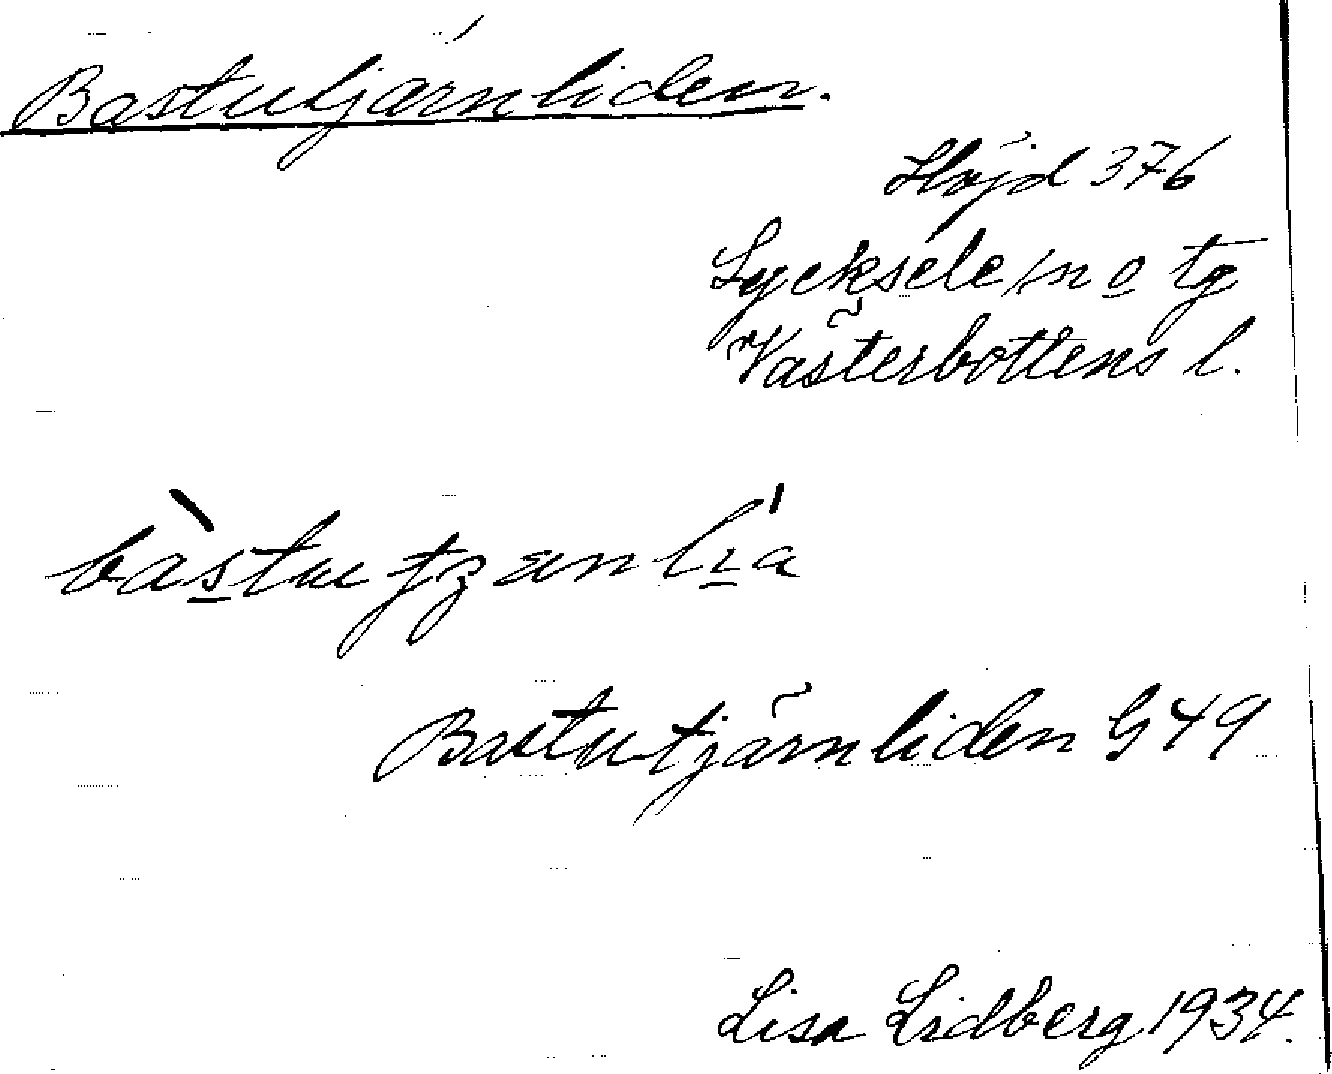 Bastutjärnliden.
Höjd 376
Lycksele sn o tg
Västerbottens l.
Bastutjärnliden G49
Lisa Lidberg 1934.